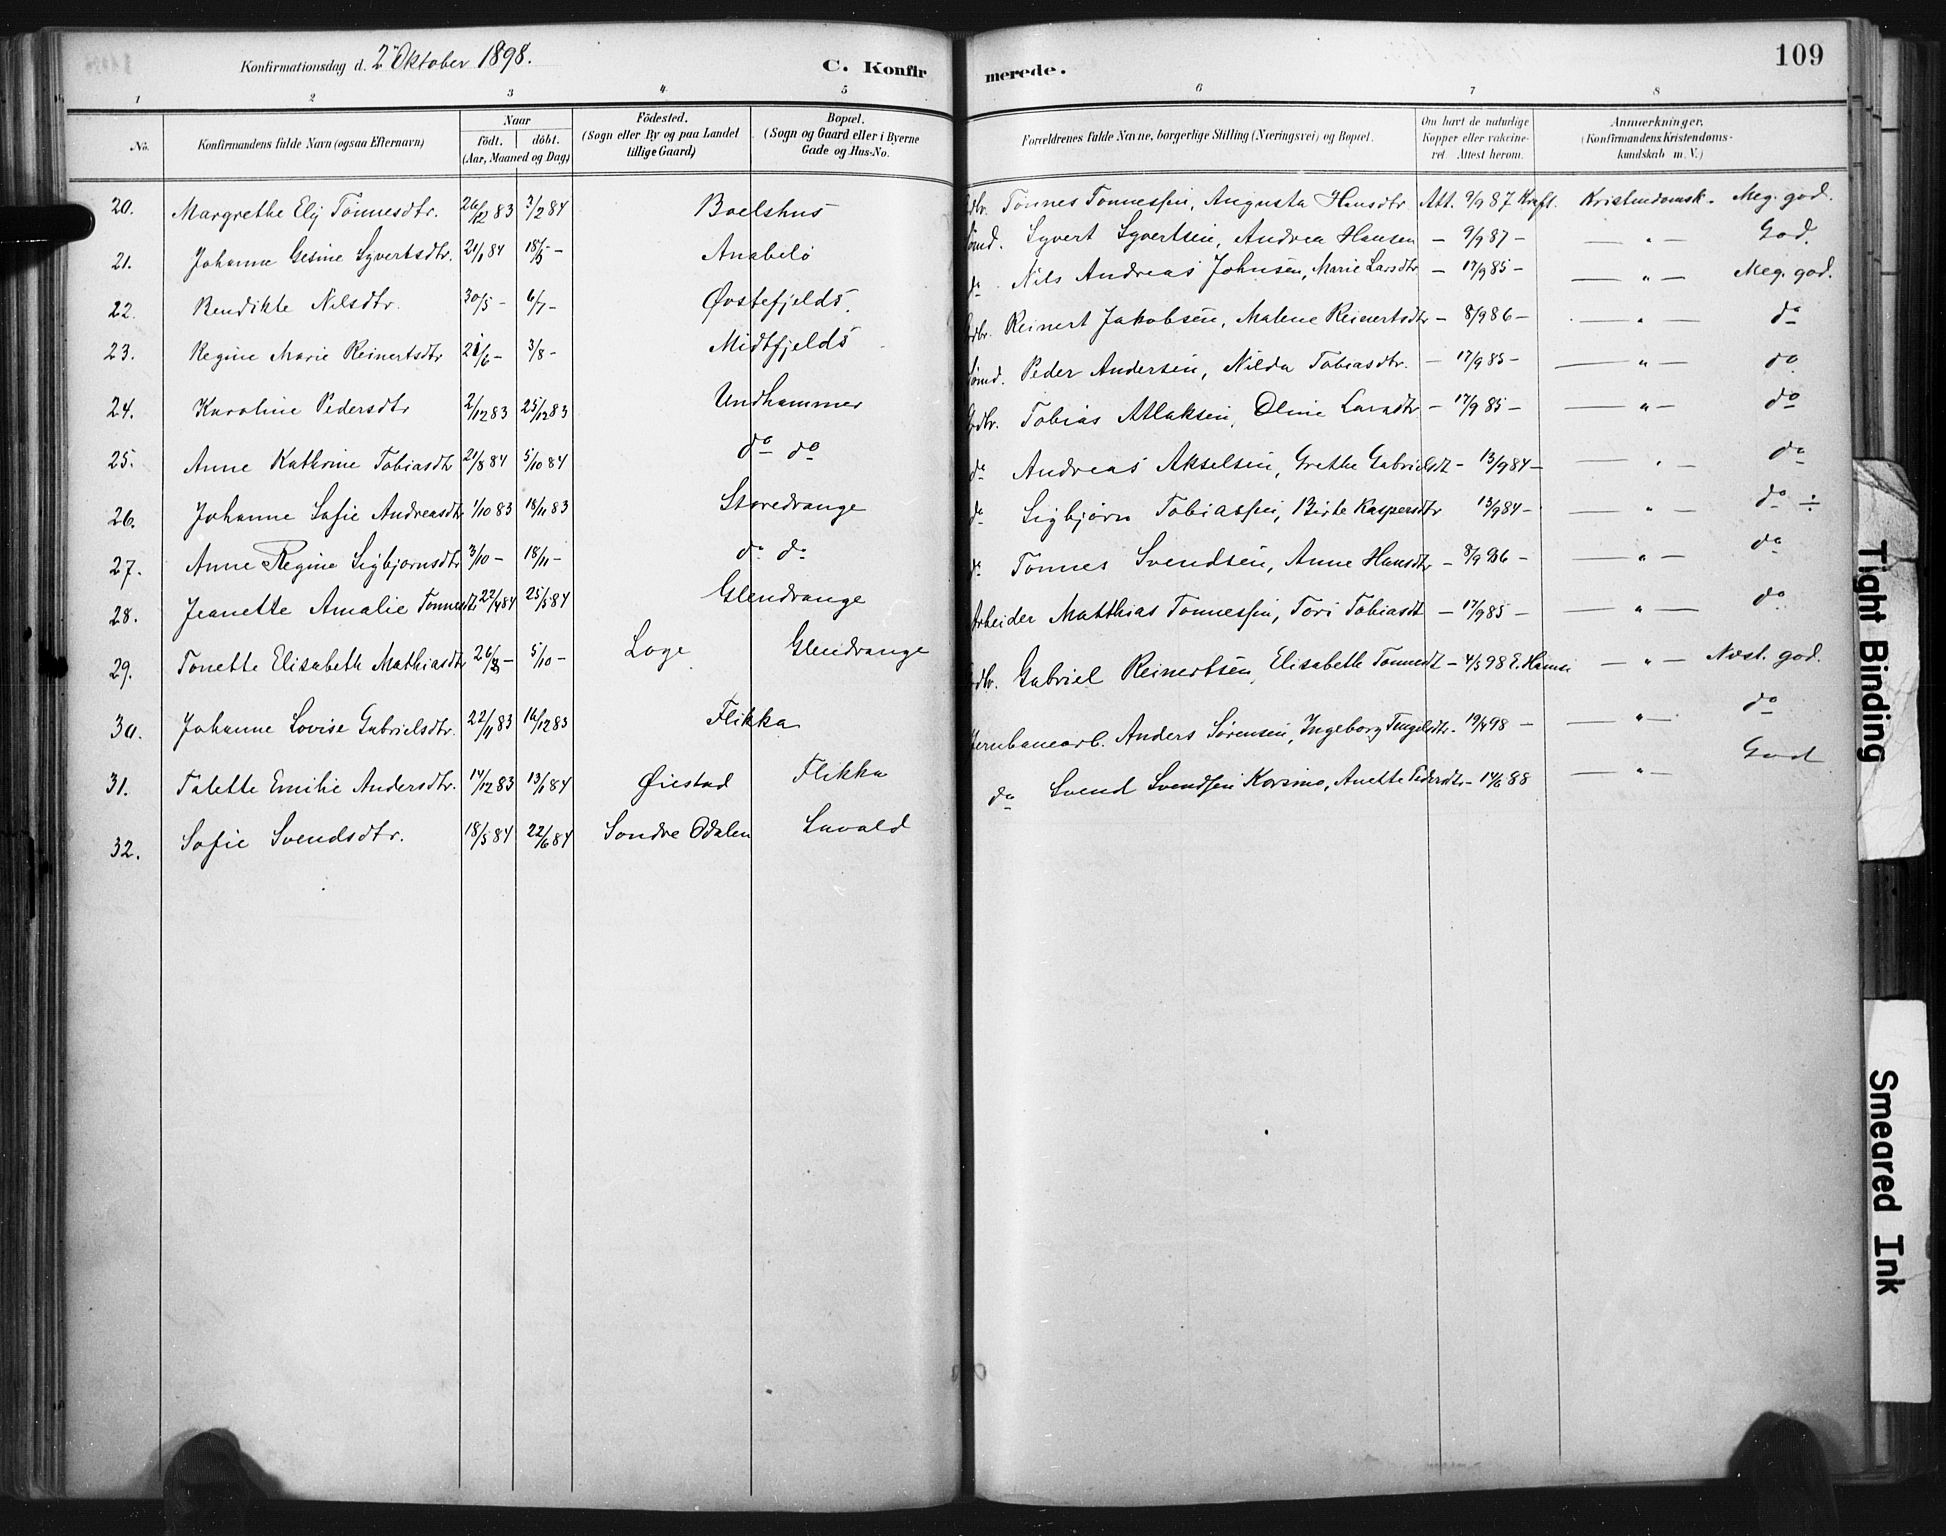 Konfirmationsdag d. 2 Oktober 1898.
C. Konfirmerede.
109
1 2 3 4 5 6 7 8
No.
Konfirmandens fulde Navn (ogsaa Efternavn)
Naar
födt. döbt.
(Aar, Maaned og Dag)
Födested.
(Sogn eller By og paa Landet
tillige Gaard)
Bopæl.
(Sogn og Gaard eller i Byerne
Gade og Hus-No.
Forældrenes fulde Navne, borgerlige Stilling (Næringsvei) og Bopæl.
Om havt de naturlige
Kopper eller vakcine-
ret Attest herom.
Anmærkninger,
(Konfirmandens Kristendoms-
kundskab m. V.)
20. Margrethe Elij Tönnesdtr. 26/12 83 3/2 84 Boelshus Gdbr. Tönnes Tönnessen, Augusta Hansdtr. Att. 9/9 87 Kraft. Kristendomsk. Meg. god.
21. Johanne Gesine Syvertsdtr. 21/1 84 18/5 - Anabelö Sömd. Syvert Syvertsen, Andrea Hansen - 9/9 87 - — " — God.
22. Bendikte Nilsdtr. 30/5 - 6/7 - Øvstefjelds do Nils Andreas Johnsen, Marie Larsdtr - 17/9 85 - — " — Meg. god.
23. Regine Marie Reinertsdtr 21/6 - 3/8 - Midtfjelds Gdbr. Reinert Jakobsen, Malene Reinertsdtr - 8/9 86 - — " — do
24. Karoline Pedersdtr 2/12 83 25/12 83 Undhammer Sömd. Peder Andersen, Nilda Tobiasdtr. - 17/9 85 - — " — do
25. Anne Kathrine Tobiasdtr 21/8 84 5/10 84 do do Gdbr. Tobias Atlaksen, Oline Larsdtr - 17/9 85 - — " — do
26. Johanne Sofie Andreasdtr 1/10 83 18/11 83 Storedrange do Andreas Akselsen, Grethe Gabrielsdt - 13/9 84 - — " — do
27. Anne Regine Sigbjornsdtr 3/10 - 18/11 - do do do Sigbjörn Tobiassen, Birte Kaspersdtr 13/9 84 - — " — do ÷
28. Jeanette Amalie Tonnesdtr 22/4 84 25/5 84 Glendrange do Tonnes Svendsen, Anne Hansdtr - 8/9 86 - — " — do
29. Tonette Elisabeth Mathiasdtr 26/8 - 5/10 - Loge Glendrange Arbeider Matthias Tonnessen, Tori Tobiasdt - 17/9 85 - — " — do
30. Johanne Lovise Gabrielsdtr. 22/11 83 16/12 83 Flikka Gdbr. Gabriel Reinertsen, Elisabeth Tonnesdt - 4/5 98 — " — Næst. god.
31. Talette Emilie Andersdtr. 14/12 83 13/1 84 Øiestad Flikka Jernbanearb. Anders Sørensen, Ingeborg - 19/4 98 - — " — do
32. Sofie Svendsdtr. 18/5 84 22/6 84 Sondre Odalen Lavold do Svend Svendsen Korsmo, Anette Pedersdtr - 14/6 88 — " — God
Tight Binding
Smeared Ink